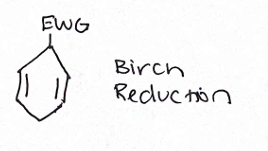 EWG
Birch
Reduction